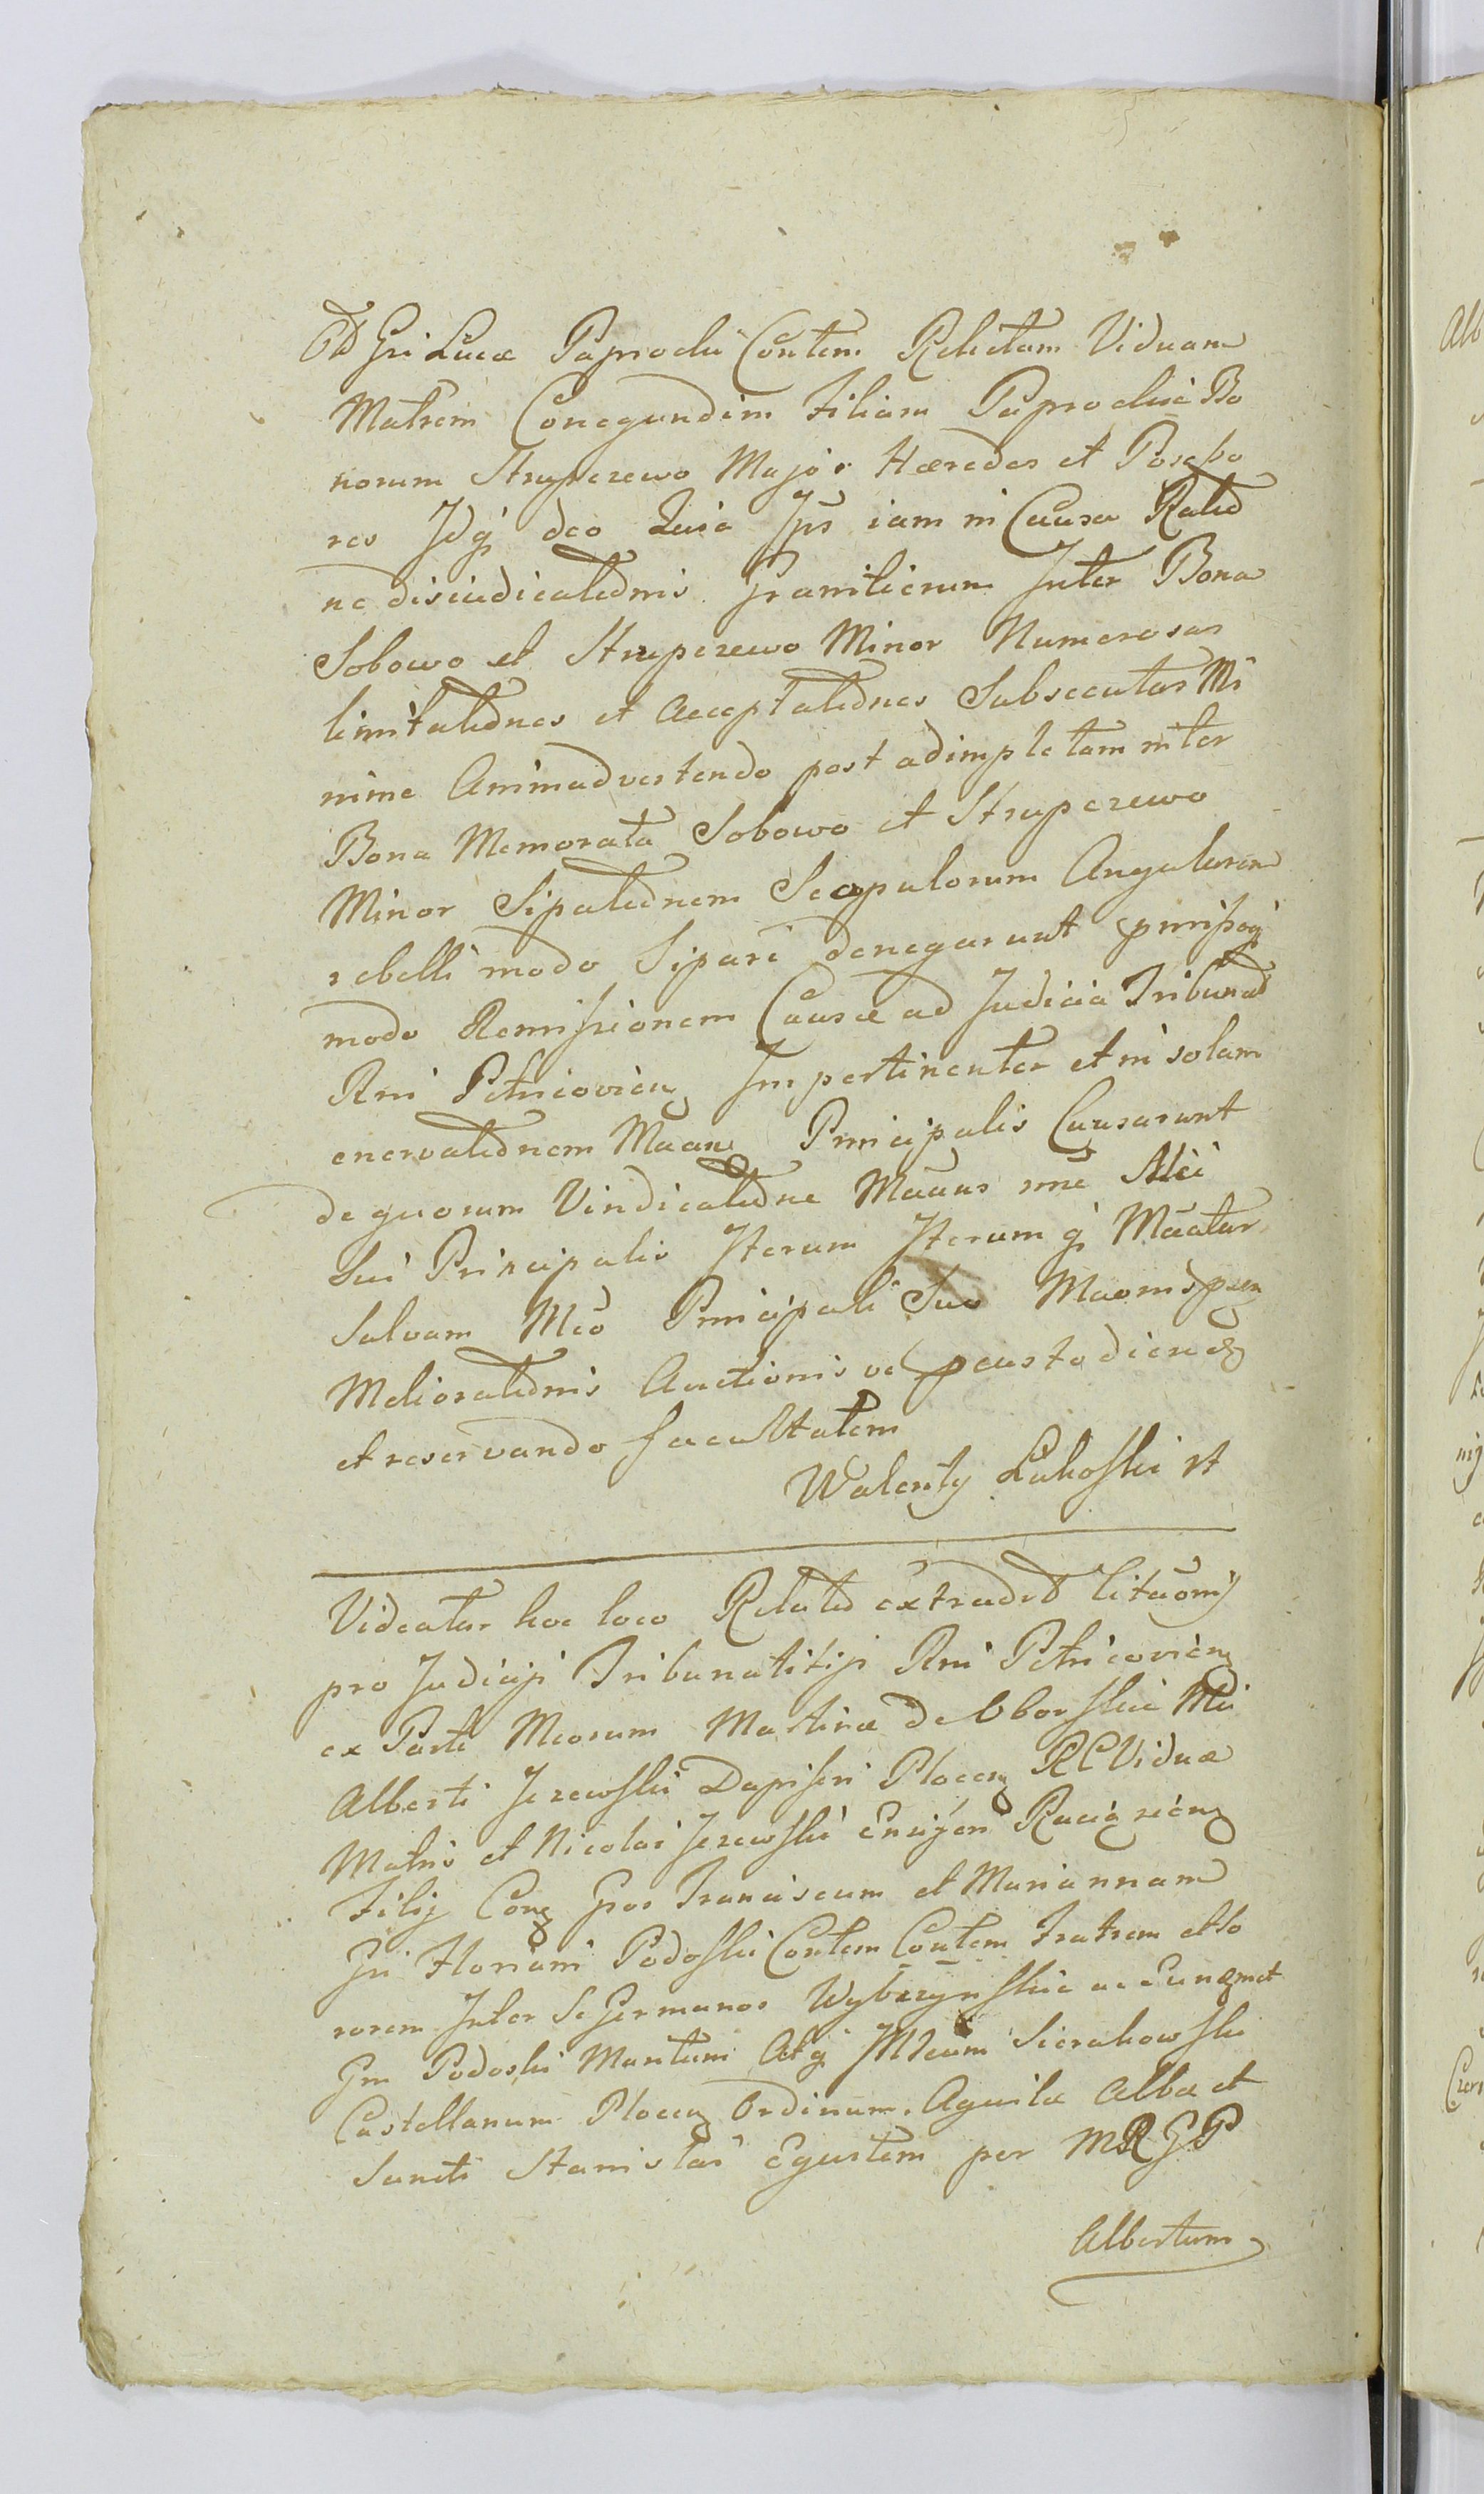 Gri Lucæ Paprocki Contem Relictam Viduam
Matrem Conegundim Filiam Paprockie Bo
norum Strupczewo Major Hæredes et Possesso
res Idq deo Quia Ips iam in Causa Ratio
ne disiudicationis Granicierum Inter Bona
Sobowo et Strupczewo Minor Numerosas
limitationes et Acceptationes Subsecutas Mi
nime Animadvertendo post adimpletam inter
Bona Memorata Sobowo et Strupczewo
Minor Sipationem Scopulorum Angularem
rebelli modo Sipare denegarunt
modo Remissionem Causæ ad Judicia Tribunal
Rni Petricovien Impertinenter et in solam
enervationem Principalis Causarunt
de quorum Vindicatione
Sui Principalis Iterum Iterum q
Salvam Mco Principali Suo
Meliorationis Auctionis custodien
et reservando facultatem
Walenty Lukoski
Videatur hoc loco
pro Judicijs Tribunalitijs Rni Petricovien
ex Parte Meorum Martinæ de Oborskie
Alberti Jezewski Dapiferi Plocen RC Viduæ
Matris et Nicolai Jezewski Racią zien
Filij Con Gros Franciscum et Mariannam
Gri Floriani Podoski Contem Contem Fratrem et So
rorem Inter Se Germanos Wybczynskie ac Eunqmet
Grm Podoski Maritum Atq Sierakowski
Castellanum Plocen Ordinum Aquilæ Albæ et
Sancti Stanislai Equitem per MRGP
Albertum